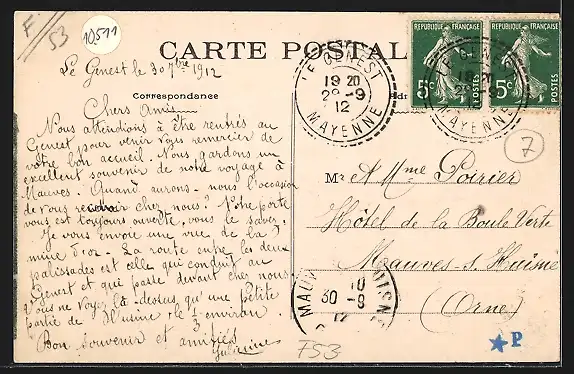 F/53
10511
CARTE POSTALE
RÉPUBLIQUE FRANÇAISE
5c POSTES
RÉPUBLIQUE FRANÇAISE
5c POSTES
LE GENEST
19 20
29-9
12
MAYENNE
Le Genest le 30 7bre 1912
Correspondance
Chers Amis
Nous attendions à être rentrés au
Genest pour venir vous remercier de
votre bon accueil. Nous gardons un
excellent souvenir de notre voyage à
Mauves. Quand aurons-nous l'occasion
de vous revoir chez nous? Notre porte
vous est toujours ouverte, vous le savez.
Je vous envoie une vue de la
mine d'or. La route entre les deux
palissades est celle qui conduit au
Genest et qui passe devant chez nous.
Vous ne voyez là-dessus qu'une petite
partie de l'usine le 1/3 environ
Bon souvenir et amitiés
7
Mr & Mme Poirier
Hôtel de la Boule Verte
Mauves-s-Huisne
(Orne)
10
30-9
12
F53
P